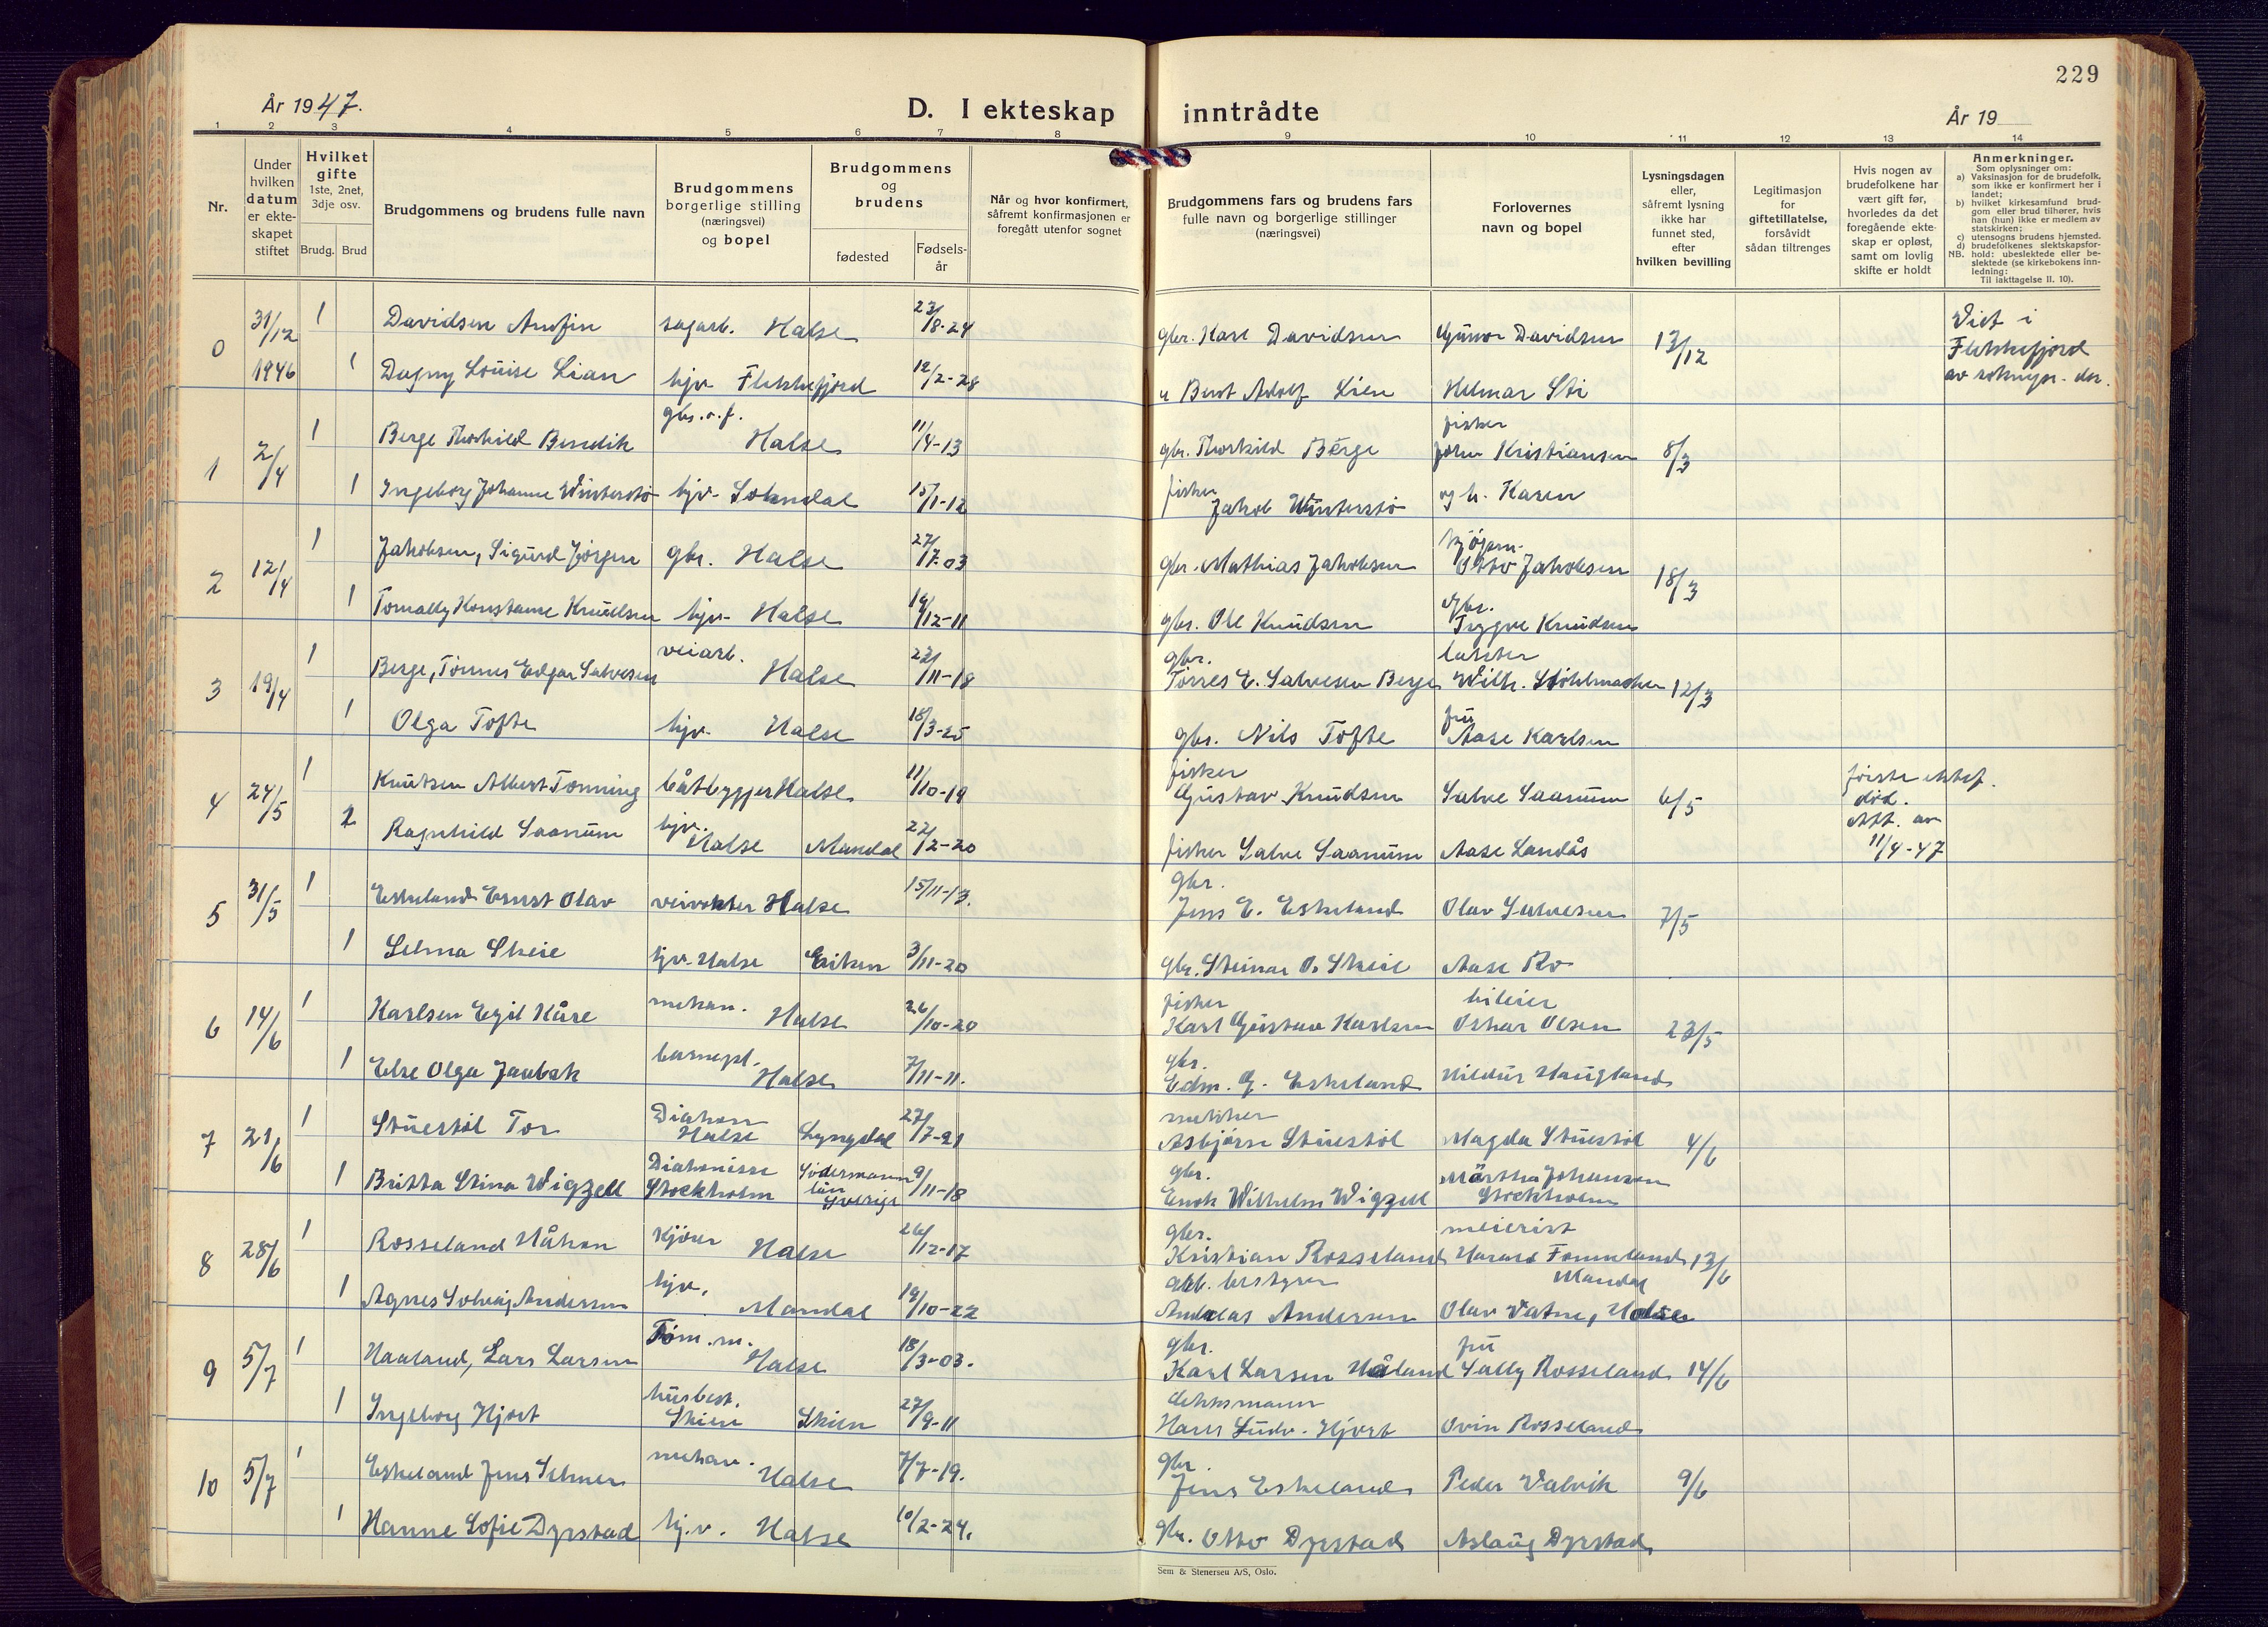 229
År 1947.
D. I ekteskap inntrådte
År 19
1 2 3 4 5 6 7 8 9 10 11 12 13 14
Nr.
Under hvilken datum er ekteskapet stiftet
Hvilket gifte
1ste, 2net, 3dje osv.
Brudg. Brud
Brudgommens og brudens fulle navn
Brudgommens borgerlige stilling (næringsvei) og bopel
Brudgommens og brudens
fødested
Fødsels-år
Når og hvor konfirmert, såfremt konfirmasjonen er foregått utenfor sognet
Brudgommens fars og brudens fars fulle navn og borgerlige stillinger (næringsvei)
Forlovernes navn og bopel
Lysningsdagen eller, såfremt lysning ikke har funnet sted, efter hvilken bevilling
Legitimasjon for giftetillatelse, forsåvidt sådan tiltrenges
Hvis nogen av brudefolkene har vært gift før, hvorledes da det foregående ekteskap er opløst, samt om lovlig skifte er holdt
Anmerkninger.
Som oplysninger om:
a) Vaksinasjon for de brudefolk, som ikke er konfirmert her i landet;
b) hvilket kirkesamfund brudgom eller brud tilhører, hvis han (hun) ikke er medlem av statskirken;
c) utensogns brudens hjemsted.
d) brudefolkenes slektskapsforhold: ubeslektede eller beslektede (se kirkebokens innledning:
NB.
Til iakttagelse II. 10).
0 31/12 1 Davidsen Anfin sagarb. Halse 23/8-24 gbr. Karl Davidsen Gunvor Davidsen 13/12 Viet i
Flekkefjord
1946 1 Dagny Louise Lian hjv Flekkefjord 12/2-28 " Bert Adolf Lien Hilmar Sti av sokнepr. der.
1 2/4 1 Berge Thorkild Bendik gbr. o. f. Halse 11/4-13 gbr. Thorkild Berge fisker John Kristiansen 8/3
1 Ingeborg Johanne Winterstø hjv. Sokndal 15/1-12 fisker Jakob Winterstø og h. Karen
2 12/4 1 Jakobsen, Sigurd Jørgen gbr. Halse 27/7-03 gbr. Mathias Jakobsen Otto Jakobsen 18/3
1 Tomally Konstanse Knudsen hjv. Halse 19/12-11 gbr. Ole Knudsen gbr. Trygve Knudsen
3 19/4 1 Berge, Tønnes Edgar Salvesen veiarb. Halse 22/11-18 gbr. Torres E. Salvesen Berge Wilh. Stohlmacher 12/3
1 Olga Tofte hjv. Halse 18/3-25 gbr. Nils Tofte fru Aase Karlsen
4 24/5 1 Knutsen Albert Tønning båtbygger Halse 11/10-19 fisker Gustav Knudsen Salve Saanum 6/5 første ektef.
død.
2 Ragnhild Saanum hjv. Halse Mandal 22/2-20 fisker Salve Saanum Aase Landås Att. av
11/4-47
5 31/5 1 Eskeland Ernst Olav veivokter Halse 15/11-13. gbr. Jens E. Eskeland Olav Salvesen 7/5
1 Selma Skeie hjv. Halse Eiken 3/11-20 gbr. Steinar O. Skeie Aase Ro
6 14/6 1 Karlsen Egil Kåre mekan. Halse 26/10-20 fisker Karl Gustav Karlsen bileier Oskar Olsen 23/5
1 Else Olga Jaabæk barnepl. Halse 7/11-11. gbr. Edm. G. Eskeland Hildur Haugland
7 21/6 1 Stuestøl Tor Diakon Halse Lyngdal 27/7-21 snekker Asbjørn Stuestøl Magda Stuestøl 4/6
1 Britta Stina Wigzell Diakonisse Stockholm Södermann län Sverige 9/11-18 gbr. Enok Wilhelm Wigzell Märtha Johanson Stockholm
8 28/6 1 Rosseland Håkon Kjører Halse 26/12-17 gbr. Kristian Rosseland meierist Harald Tommeland Mandal 13/6
1 Agnes Solveig Andersen hjv. Mandal 19/10-22 bestyrer Andreas Andersen Olav Vatne, Halse
9 5/7 1 Haaland, Lars Larsen Tøm. m. Halse 18/3-03. gbr. Karl Larsen Håland fru Sally Rosseland 14/6
1 Ingeborg Hjort husbest. Skien Skien 27/9-11 dekksmann Hans Ludv. Hjort Ovin Rosseland
10 5/7 1 Eskeland Jens Selmer mekan. Halse 7/7-19. gbr. Jens Eskeland Peder Valvik 9/6
1 Hanne Sofie Dyrstad hj.v. Halse 10/2-24. gbr. Otto Dyrstad Aslaug Dyrstad
Sem & Stenersen A/S, Oslo.